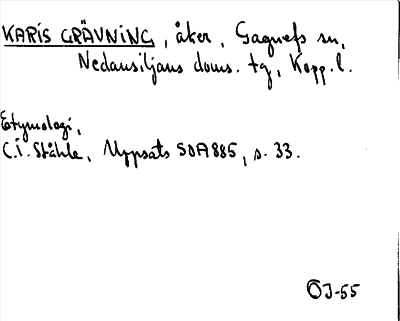 KARIS GRÄVNING, åker, Gagnefs sn,
Nedansiljans doms. tg, Kopp. l.
Etymologi,
C.I. Ståhle, Uppsats SOA 885, s. 33.
ÖJ-55